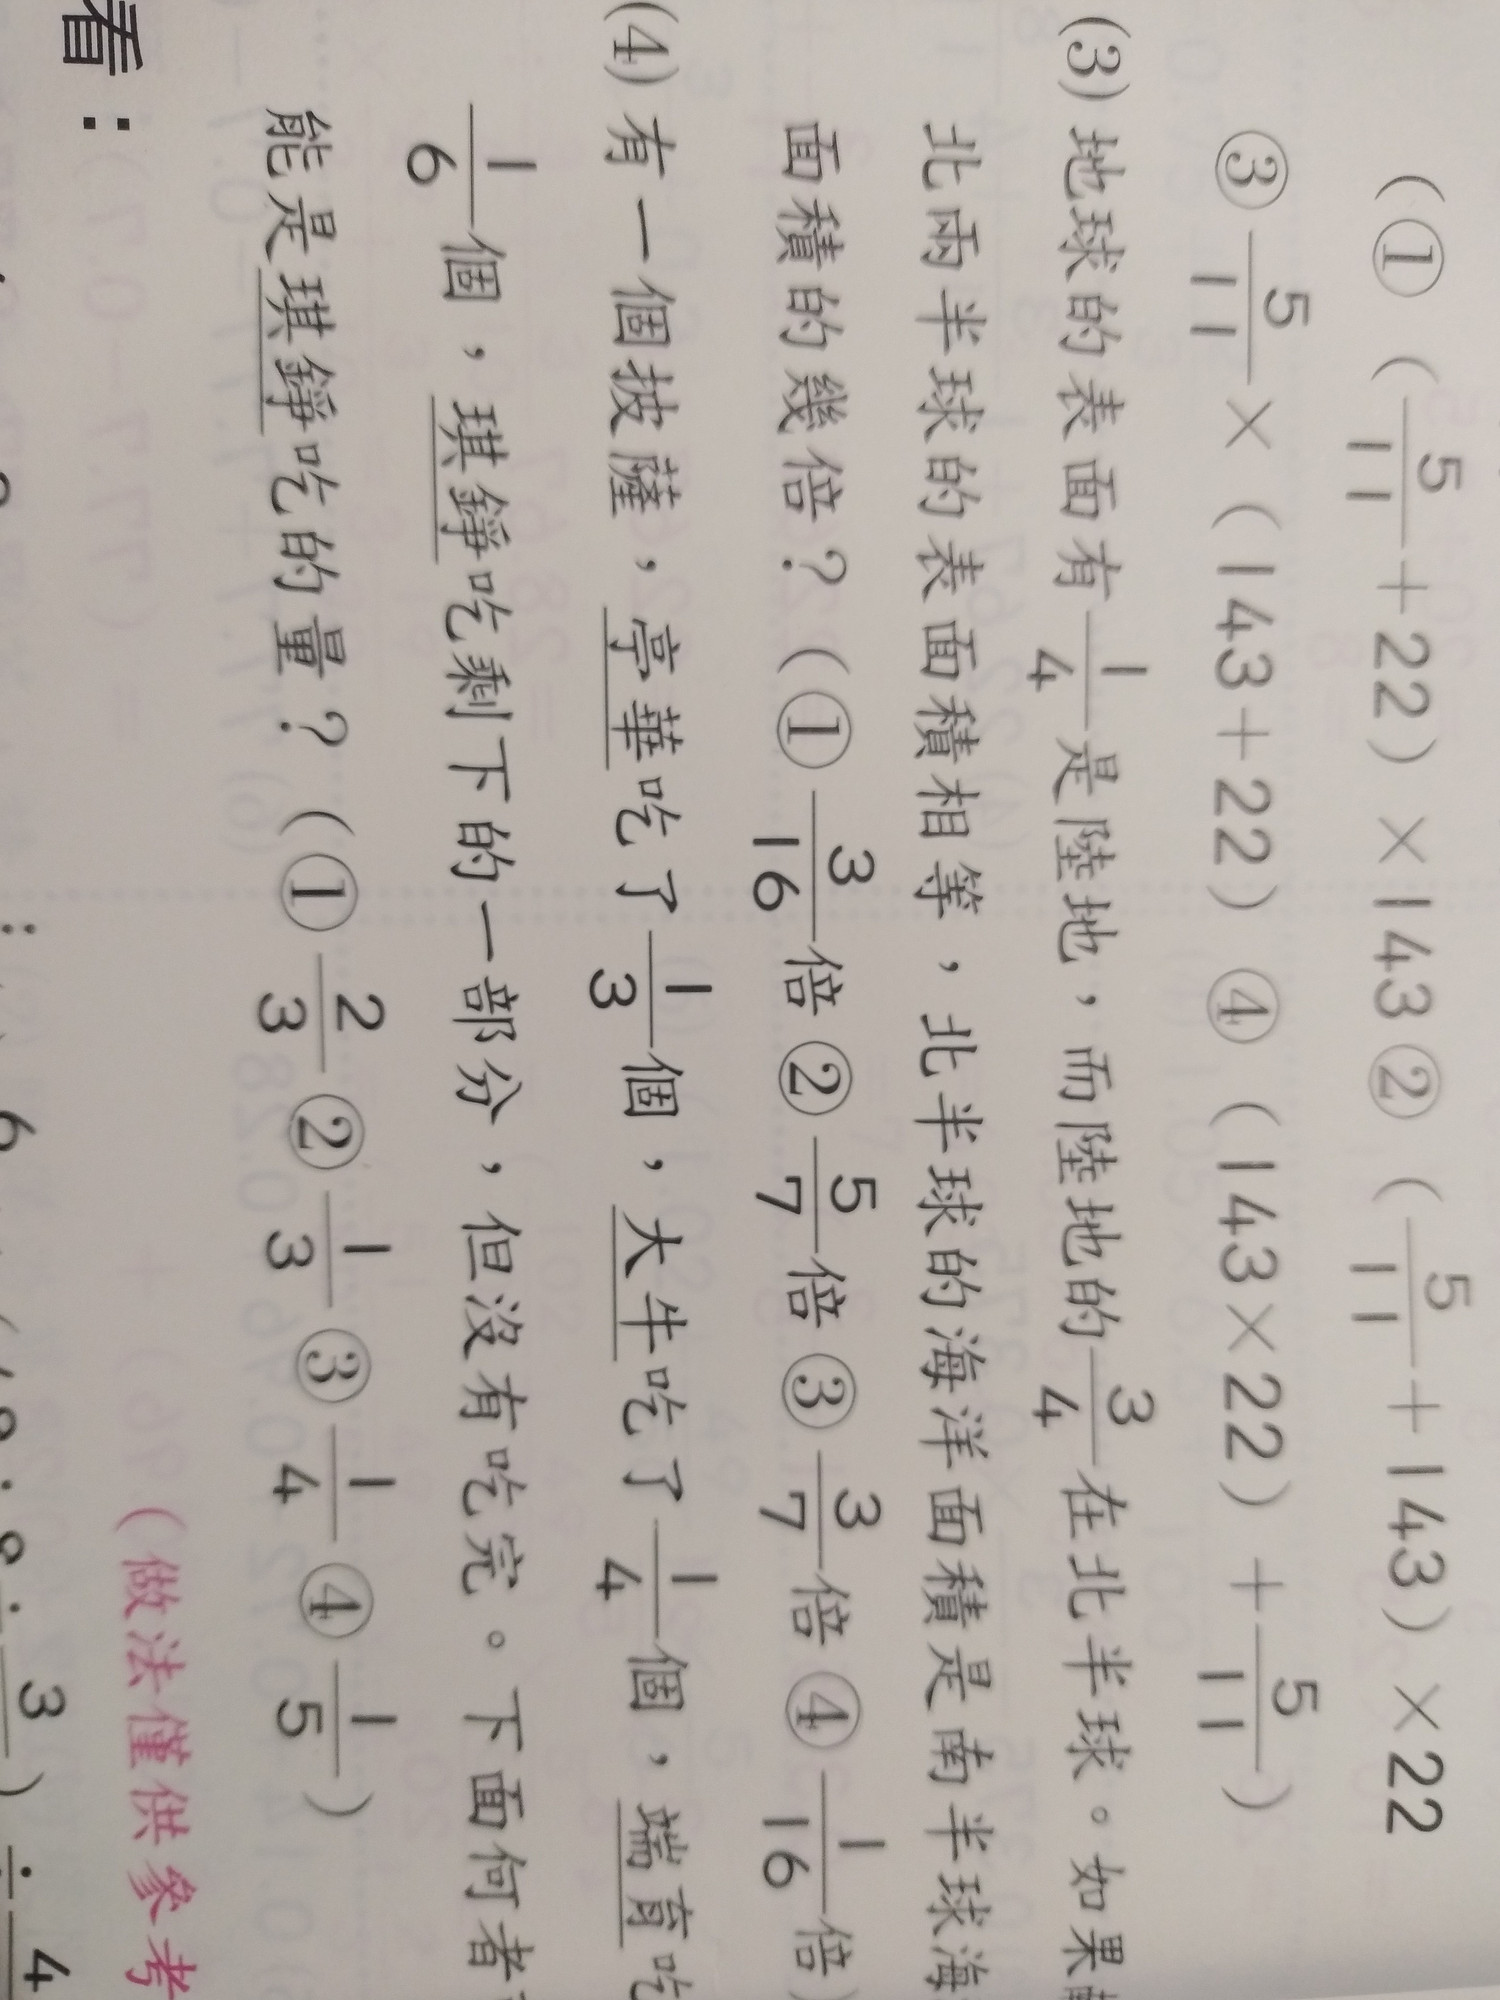 (① (5/11+22)×143 ② (5/11+143)×22
③ 5/11×(143+22) ④ (143×22)+5/11)
(3) 地球的表面有1/4是陸地,而陸地的3/4在北半球。如果
北兩半球的表面積相等,北半球的海洋面積是南半球海
面積的幾倍?(① 3/16倍 ② 5/7倍 ③ 3/7倍 ④ 1/16倍)
(4) 有一個披薩,亭華吃了1/3個,大牛吃了1/4個,端育吃
1/6個,琪錚吃剩下的一部分,但沒有吃完。下面何者
能是琪錚吃的量?(① 2/3 ② 1/3 ③ 1/4 ④ 1/5)
(做法僅供參考
看: